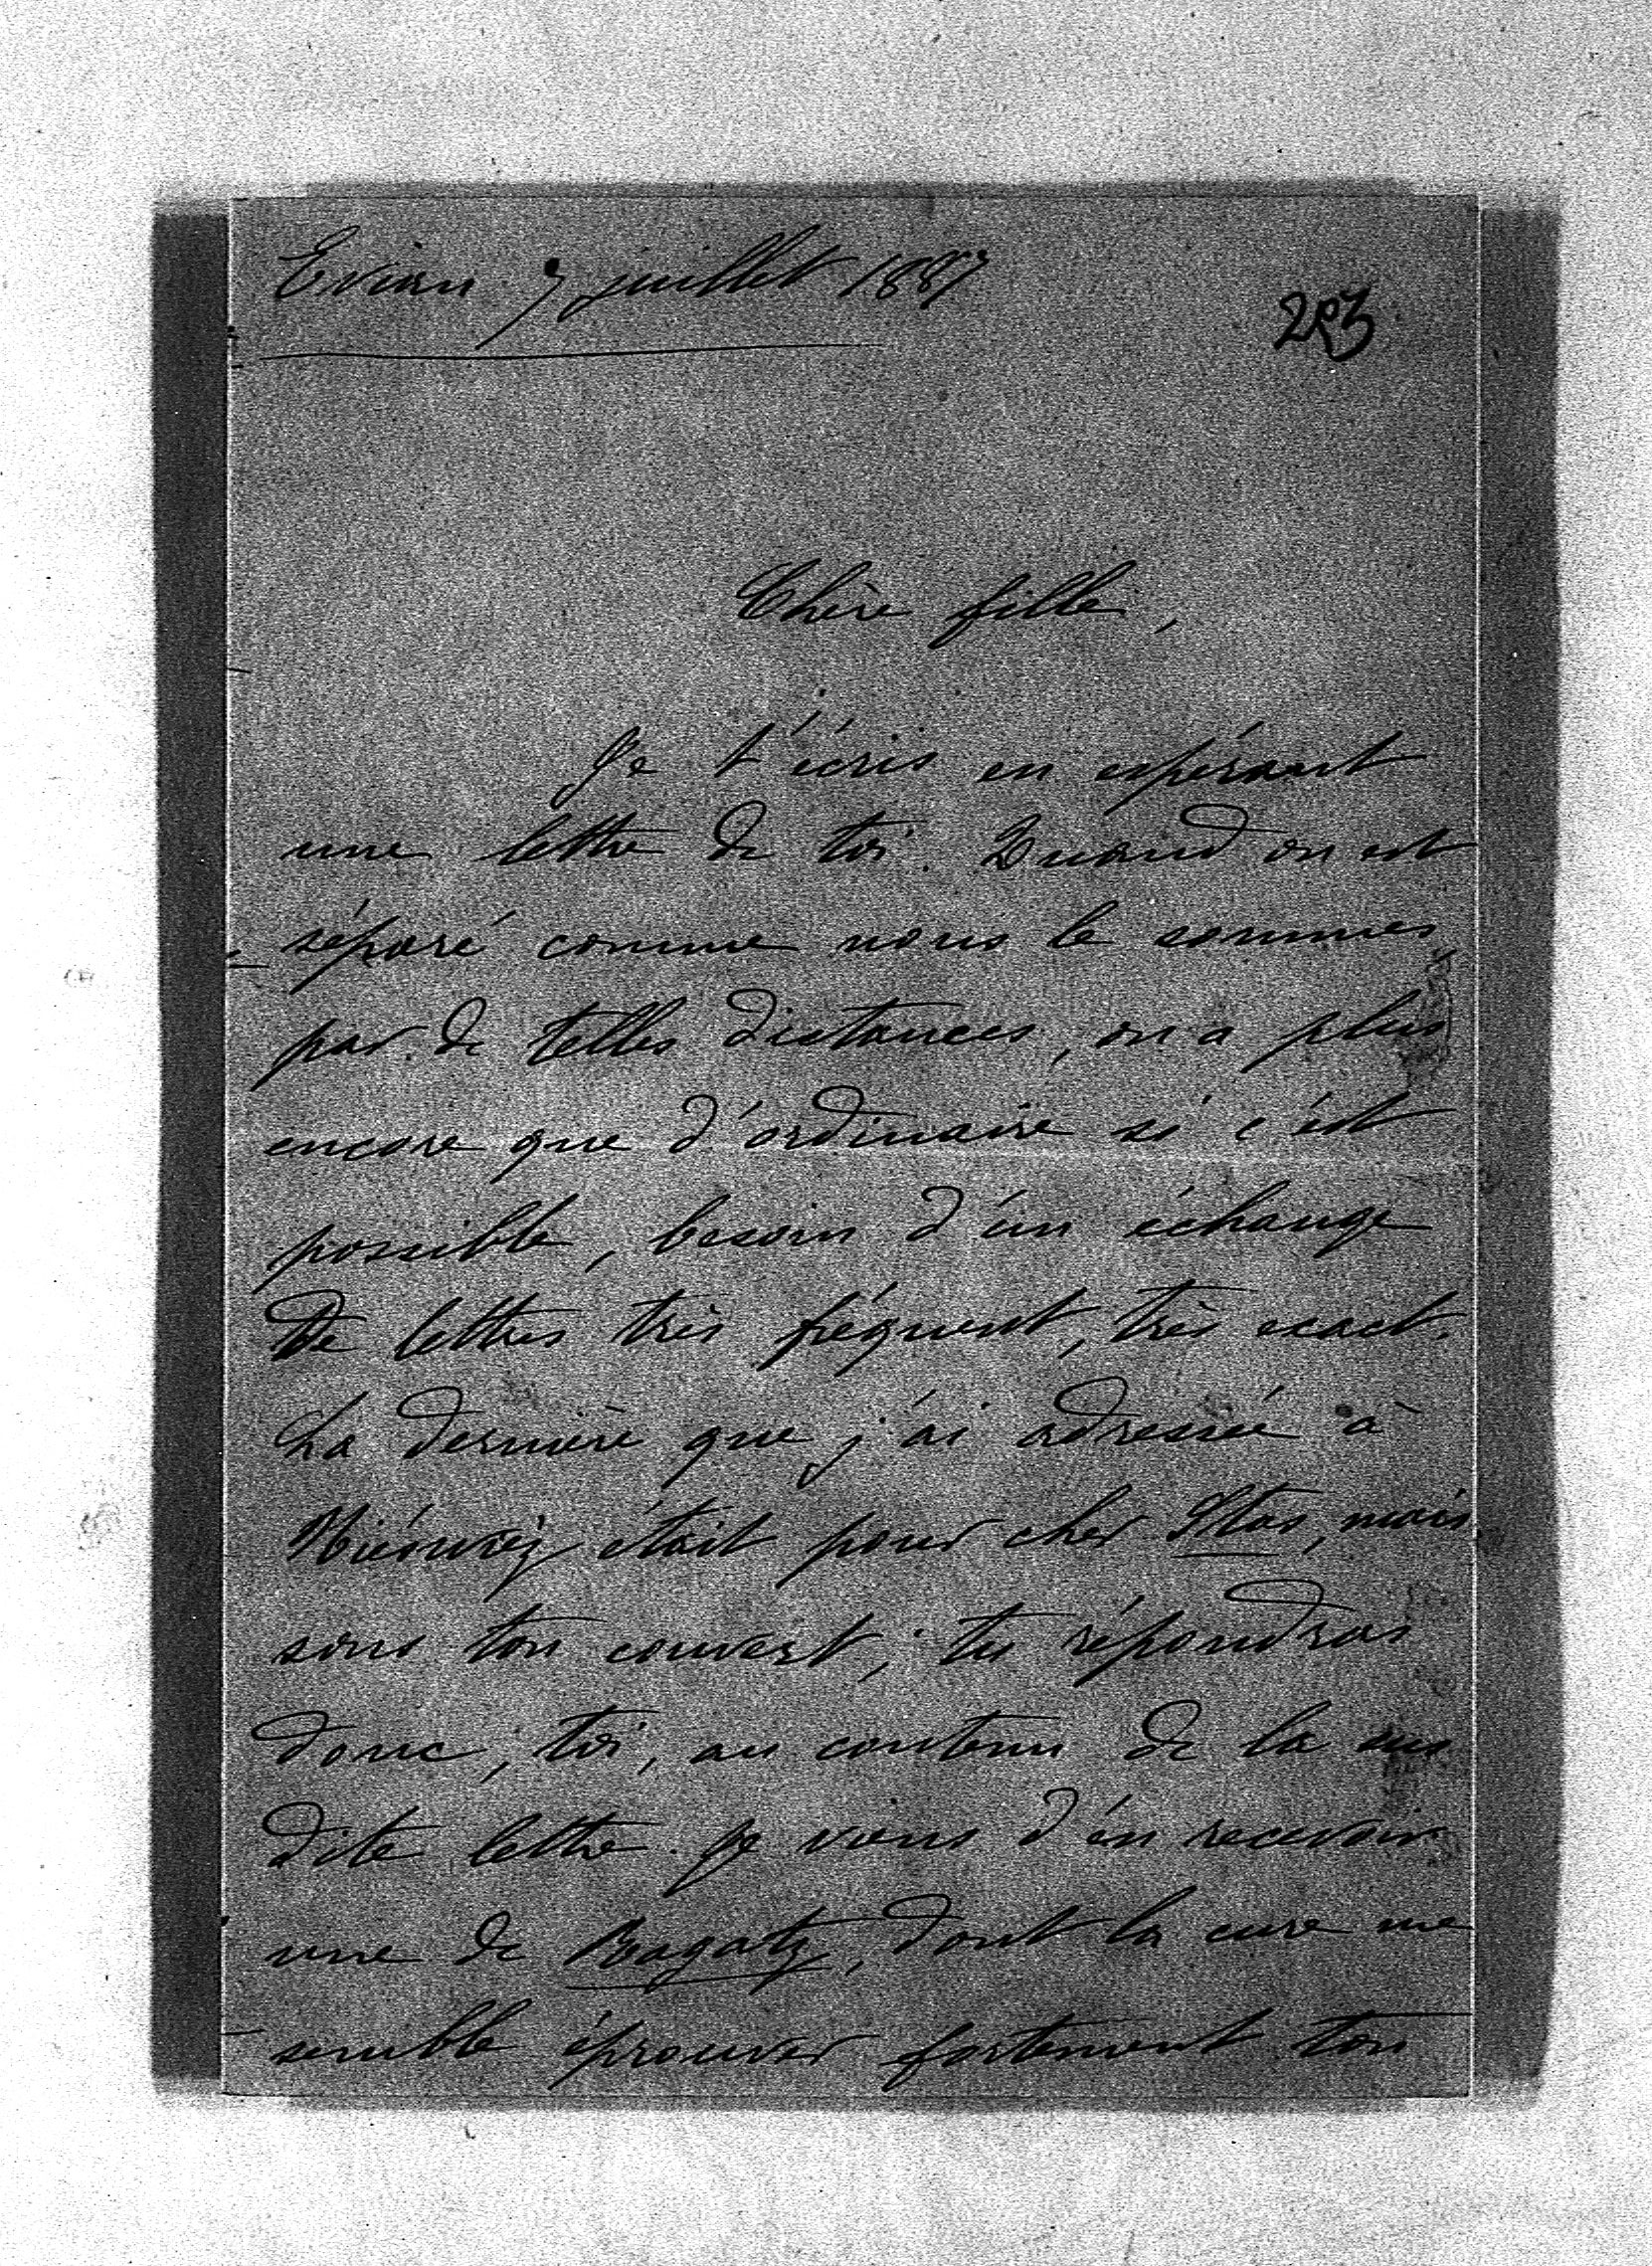 Evian 7 juillet 1887
Chère fille,
Je t'écris en espérant
une lettre de toi. Quand on est
séparé comme nous le sommes,
par de telles distances, on a plus
encore que d'ordinaire si c'est
possible, besoin d'un échange
de lettres très fréquent, très exact.
La dernière que j'ai adressée à
était pour cher Stas, mais
sous ton couvert; tu répondras
donc, toi, au contenu de la sus
dite lettre. Je viens d'en recevoir
une de Ragatz, dont la cure me
semble éprouver fortement ton